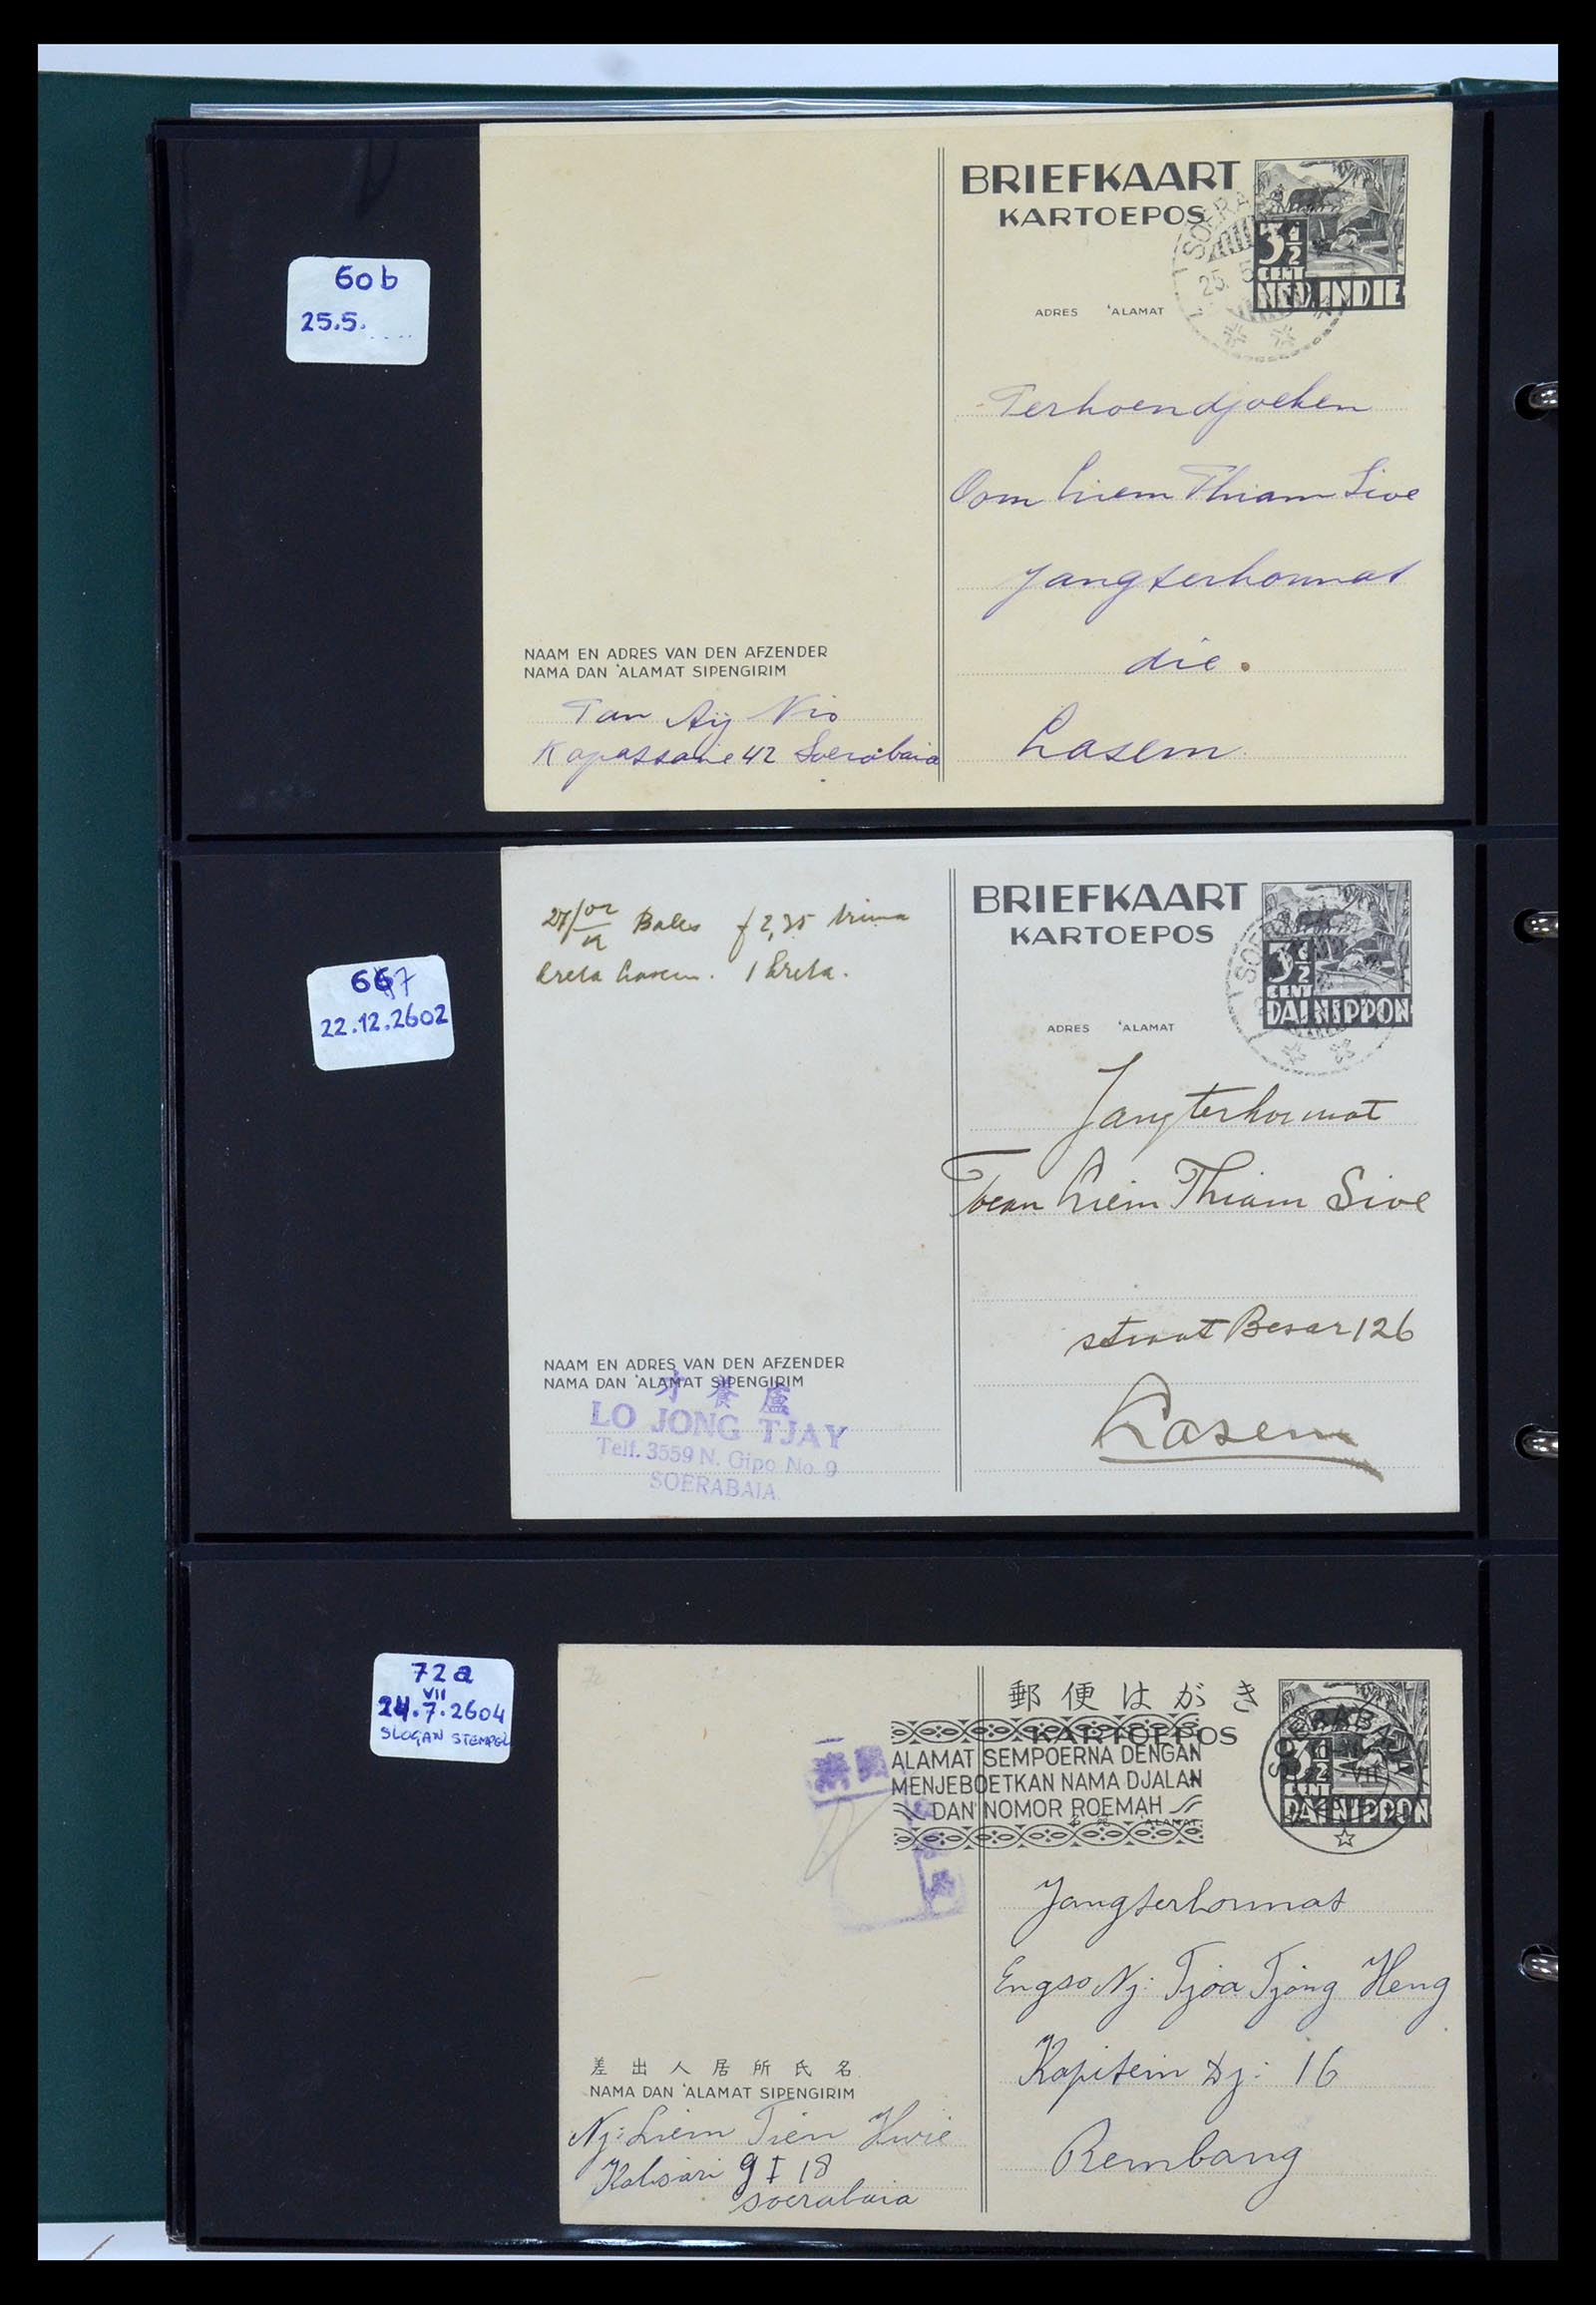 60b
25.5.
BRIEFKAART
KARTOEPOS
3½
CENT
NED. INDIE
SOERA
25. 5
ADRES 'ALAMAT
Terhoendjoeken
Oom Liem Thiam Sioe
Jangterhormat
die.
Lasem.
NAAM EN ADRES VAN DEN AFZENDER
NAMA DAN 'ALAMAT SIPENGIRIM
Tan Aij Nio
Kapassane 42 Soerabaia
667
22.12.2602
f 2,35 trima
BRIEFKAART
KARTOEPOS
3½
CENT
DAI NIPPON
ADRES 'ALAMAT
Jangterhormat
Toean Liem Thiam Sioe
straat Besar 126
Lasem
NAAM EN ADRES VAN DEN AFZENDER
NAMA DAN 'ALAMAT SIPENGIRIM
才養盧
LO JONG TJAY
Telf. 3559 N. Gipo No. 9
SOERABAIA.
72a
VII
24.7.2604
SLOGAN STEMPEL
郵便はがき
KARTOEPOS
ALAMAT SEMPOERNA DENGAN
MENJEBOETKAN NAMA DJALAN
DAN NOMOR ROEMAH
'ALAMAT
SOERABAJA
3½
CENT
DAI NIPPON
Jangterhormat
Engso Nj: Tjoa Tjong Heng
Kapitein Dj: 16
Rembang
差出人居所氏名
NAMA DAN 'ALAMAT SIPENGIRIM
Nj: Liem Tien Hwie
Kalisari 9 I 18
soerabaia